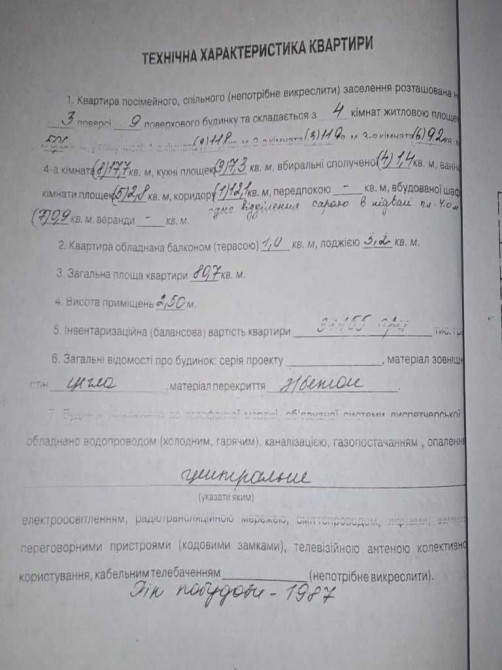 ТЕХНІЧНА ХАРАКТЕРИСТИКА КВАРТИРИ
1. Квартира посімейного, спільного (непотрібне викреслити) заселення розташована н
3 поверсі 9 поверхового будинку та складається з 4 кімнат житловою площе
(2) 11,8 кв. м 2-а кімната (3) 11,9 м 3-а кімната (6) 9,2 кв. м
4-а кімната (8) 17,7 кв. м, кухні площею (9) 7,3 кв. м, вбиральні сполучено (4) 1,4 кв. м, ванн
кімнати площею (5) 2,8 кв. м, коридор (1) 12,1 кв. м, передпокою - кв. м, вбудованої шаф
(7) 0,9 кв. м, веранди - кв. м. одне відділення сараю в підвалі пл. 4.0 м
2. Квартира обладнана балконом (терасою) 1,0 кв. м, лоджією 3,2 кв. м.
3. Загальна площа квартири 80,7 кв. м.
4. Висота приміщень 2,50 м.
5. Інвентаризаційна (балансова) вартість квартири
6. Загальні відомості про будинок: серія проекту , матеріал зовніш
стін цегла матеріал перекриття ж/бетон .
обладнано водопроводом (холодним, гарячим), каналізацією, газопостачанням , опаленн
центральне
(указати яким)
електроосвітленням, радіотрансляційною мережею, сміттєпроводом, ліфтами,
переговорними пристроями (кодовими замками), телевізійною антеною колективно
користування, кабельним телебаченням (непотрібне викреслити).
Рік побудови - 1987